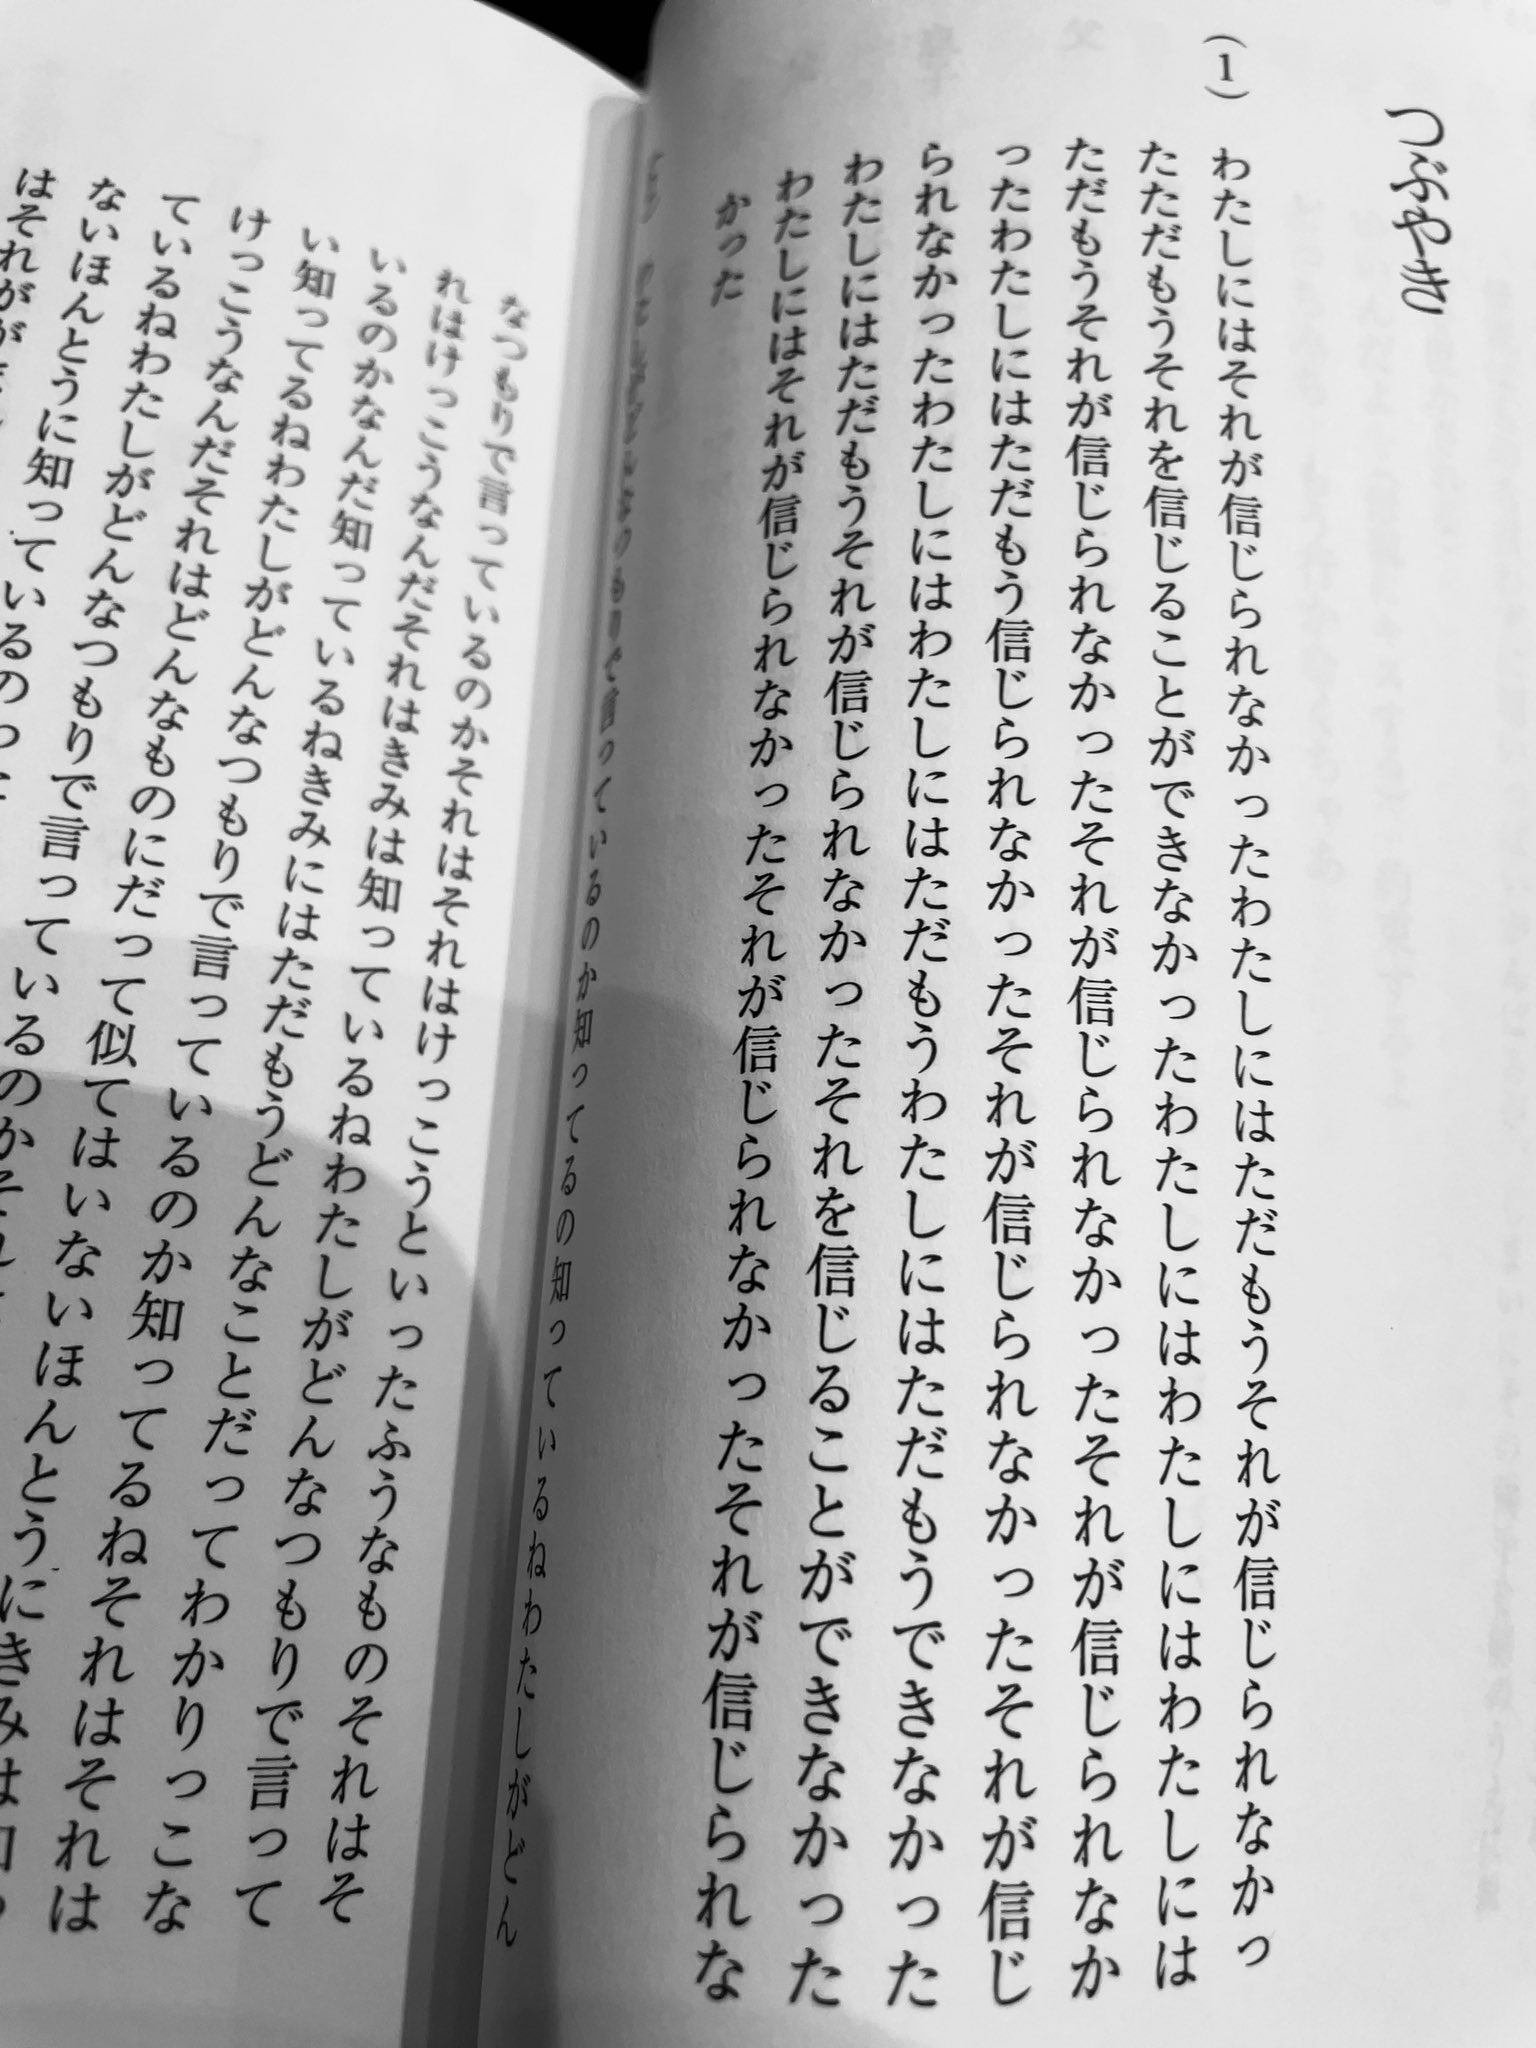 つぶやき
(1)
わたしにはそれが信じられなかったわたしにはただもうそれが信じられなかっ
たただもうそれを信じることができなかったわたしにはわたしにはわたしには
ただもうそれが信じられなかったそれが信じられなかったそれが信じられなか
ったわたしにはただもう信じられなかったそれが信じられなかったそれが信じ
られなかったわたしにはわたしにはただもうわたしにはただもうできなかった
わたしにはただもうそれが信じられなかったそれを信じることができなかった
わたしにはそれが信じられなかったそれが信じられなかったそれが信じられな
かった
言っているのか知ってるの知っているねわたしがどん
なつもりで言っているのかそれはそれはけっこうといったふうなものそれはそ
れはけっこうなんだそれはきみは知っているねわたしがどんなつもりで言って
いるのかなんだ知っているねきみにはただもうどんなことだってわかりっこな
い知ってるねわたしがどんなつもりで言っているのか知ってるねそれはそれは
けっこうなんだそれはどんなものにだって似てはいないほんとうにきみは知っ
ているねわたしがどんなつもりで言っているのかそれ
ないほんとうに知っているの
はそれが